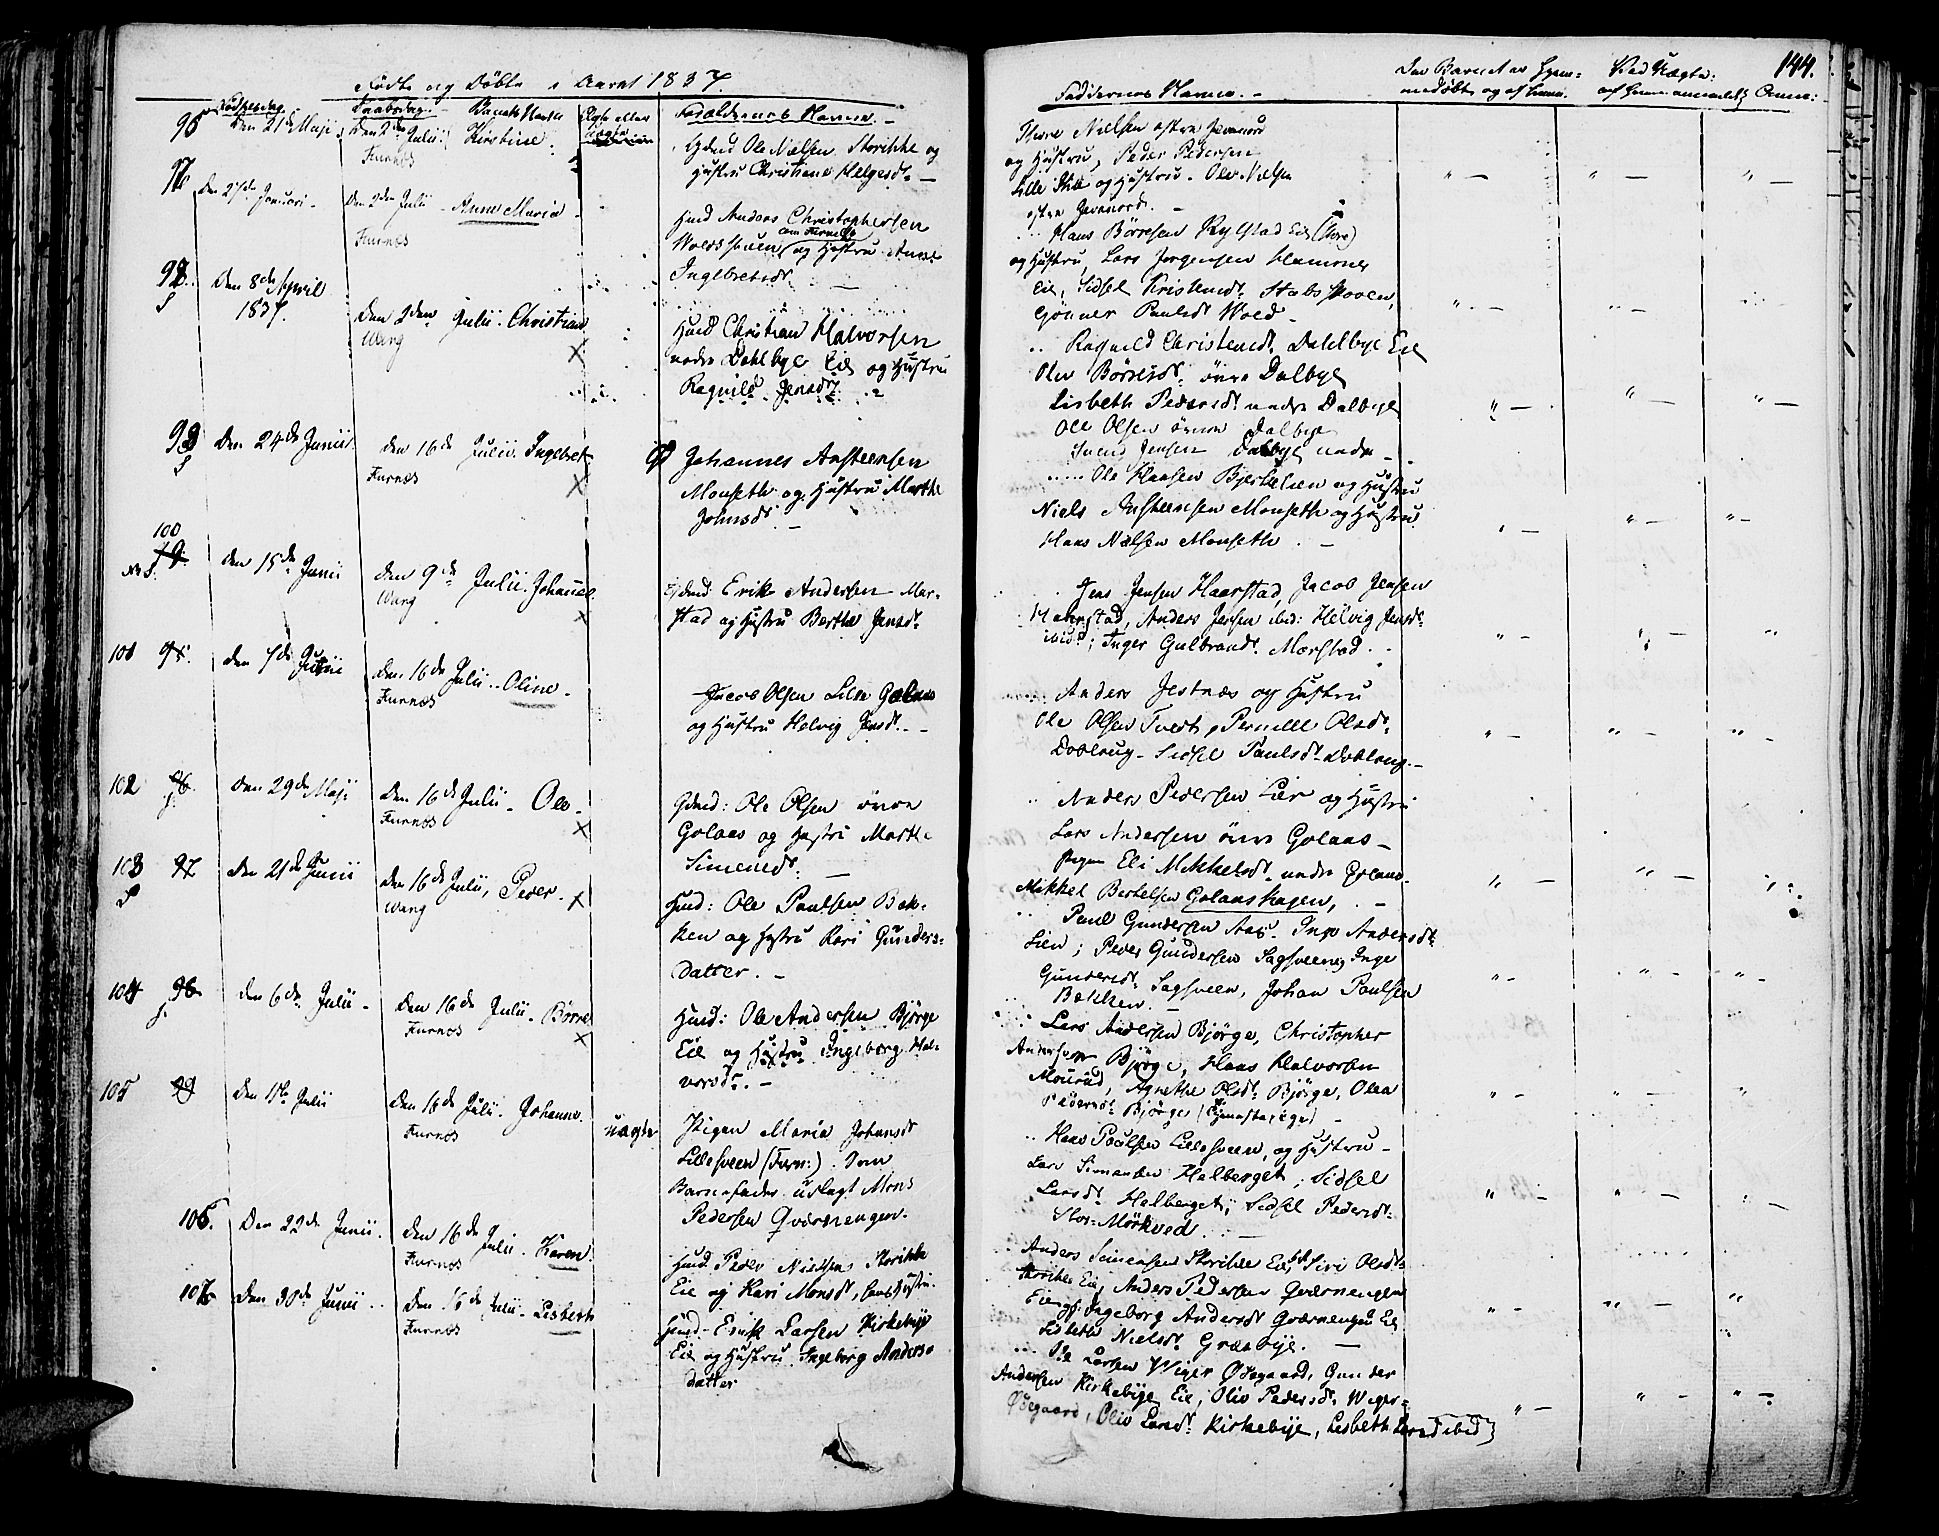 Fødte og Döbte i Aaret 1837.
Fødselsdag. Daabsdag. Barnets Navn Ægte eller Uægte Forældrenes Navne. –
96 Den 21de Maji Den 2den Julii Kirstine.
Furnæs
Ole Nielsen Storihle og
Hustru Christiane Helgesdr. –
97 Den 27de Januari – Den 2den Julii – Anne Maria –
Furnæs
Huusd Anders Christophersen
og Hustru Anne
Ingebretsdr
98. Den 8de April
1837.
S
Den 2den Julii. Christian
Wang
X
Huusd Christian Halvorsen
nedre Dahlbye Eie og Hustru
Ragnild Jensdr
99 Den 24de Junii. Den 16de Julii. Ingebret.
S Furnæs X
Johannes Ansteensen
Monseth og Hustru Marthe
Johnsdr. –
100
Den 15de Junii Den 9de Julii. Johannes
Wang X
Erik Andersen Mar-
stad og Hustru Berthe Jensdr.
101 95. Den 7de Junii Den 16de Julii .. Oline –
Furnæs
Jacob Olsen Lille Golaas
og Hustru Helvig Jensdr. –
102 96. Den 29de Maji Den 16de Julii – Ole –
Furnæs X
Gdmd: Ole Olsen övre
Golaas og Hustru Marthe
Simensdr. –
103 97 Den 21de Junii Den 16de Julii, Peder –
S Wang X
Huusd: Ole Paulsen Bak-
ken og Hustru Kari Gunders-
datter. –
104 98 Den 6de Julii – Den 16de Julii – Börre
S. Furnæs X
Huusd: Ole Andersen Björge
Eie og Hustru Ingeborg Hal-
vorsdr. –
105 99 Den 11te Julii Den 16de Julii. Johanne. uægte
Furnæs
Pigen Maria Johansdr
Lillesveen (Furn:). Som
Barnefader udlagt Mons
Pedersen Qværnengen.
106. Den 22de Junii. Den 16de Julii. Karen.
Furnæs
Huusd. Peder Nielsen Storihle
Eie og Kari Monsdr, hans Hustru.
107 Den 30de Junii .. Den 16de Julii – Lisbeth
Furnæs
Huusd – Erik Larsen Kirkebye
Eie og Hustru Ingeborg Anders-
datter
144.
Faddernes Navne. – Om Barnet er hjem-
medøbt og af hvem. Ved Uægte:
af hvem anmeldt Anm:
Nielsen östre Jevanord
og Hustru, Peder Pedersen
Lille Ihle og Hustru. Ole Nielsen
östre Jevanord. –
Hans Börresen Rylstad Eie
og Hustru, Lars Jorgensen Hammer
Eie, Sidsel Kristensdr.
Gönner Paulsdr Wold –
Ragnild Christensdr. Dahlbye Eie
Olea Börresdr. övre Dalbye
Lisbeth Pedersdr. nedre Dalbye
Ole Olsen övre Dalbye
Svend Jensen Dalbye nedre –
Ole Hansen Bjerkelien og Hustru
Niels Ansteensen Monseth og Hustru
Hans Nielsen Monseth. –
Jens Jensen Haarstad, Jacob Jensen
Haarstad, Anders Jensen ibid: Helvig Jensdr.
ibid; Inger Gulbrandr. Marstad.
Anders Jestnæs og Hustru
Ole Olsen Tvedt, Pernille Olsdr.
Doblaug – Sidsel Paulsdr – Doblaug. –
Anders Pedersen Lier og Hustru
Lars Andersen övre Golaas –
Pigen Eli Mikkelsdr. nedre Golaas.
Mikkel Bertelsen Golaashagen, –
Paul Gundersen Aas. Inge Andersdr.
Lien; Peder Gundersen Sagsveen, Inge
Gundersdr. Sagsveen, Johan Paulsen
Bakken –
Lars Andersen Björge, Christopher
Andersen Björge, Hans Halvorsen
Mourud, Agnethe Olsdr. Björge, Olea
Pedersdr. Björge –
Hans Poulsen Lillesveen, og Hustru –
Lars Simensen Halberget, Sidsel
Larsdr. Halberget, Sidsel Pedersdr.
Stor-Mörkved –
Anders Simensen Storihle Eie, Siri Olsdr.
Storihle Eie, Anders Pedersen Qværnengen
Eie, Ingeborg Andersdr Qværnengen Eie
Lisbeth Nielsdr. Græsbye. –
Ole Larsen Wiger Ødegaard, Gunder
Andersen Kirkebye Eie, Oliv Pedersdr. Wiger-
Ødegaard, Oliv Larsdr. Kirkebye, Lisbeth Larsd ibid